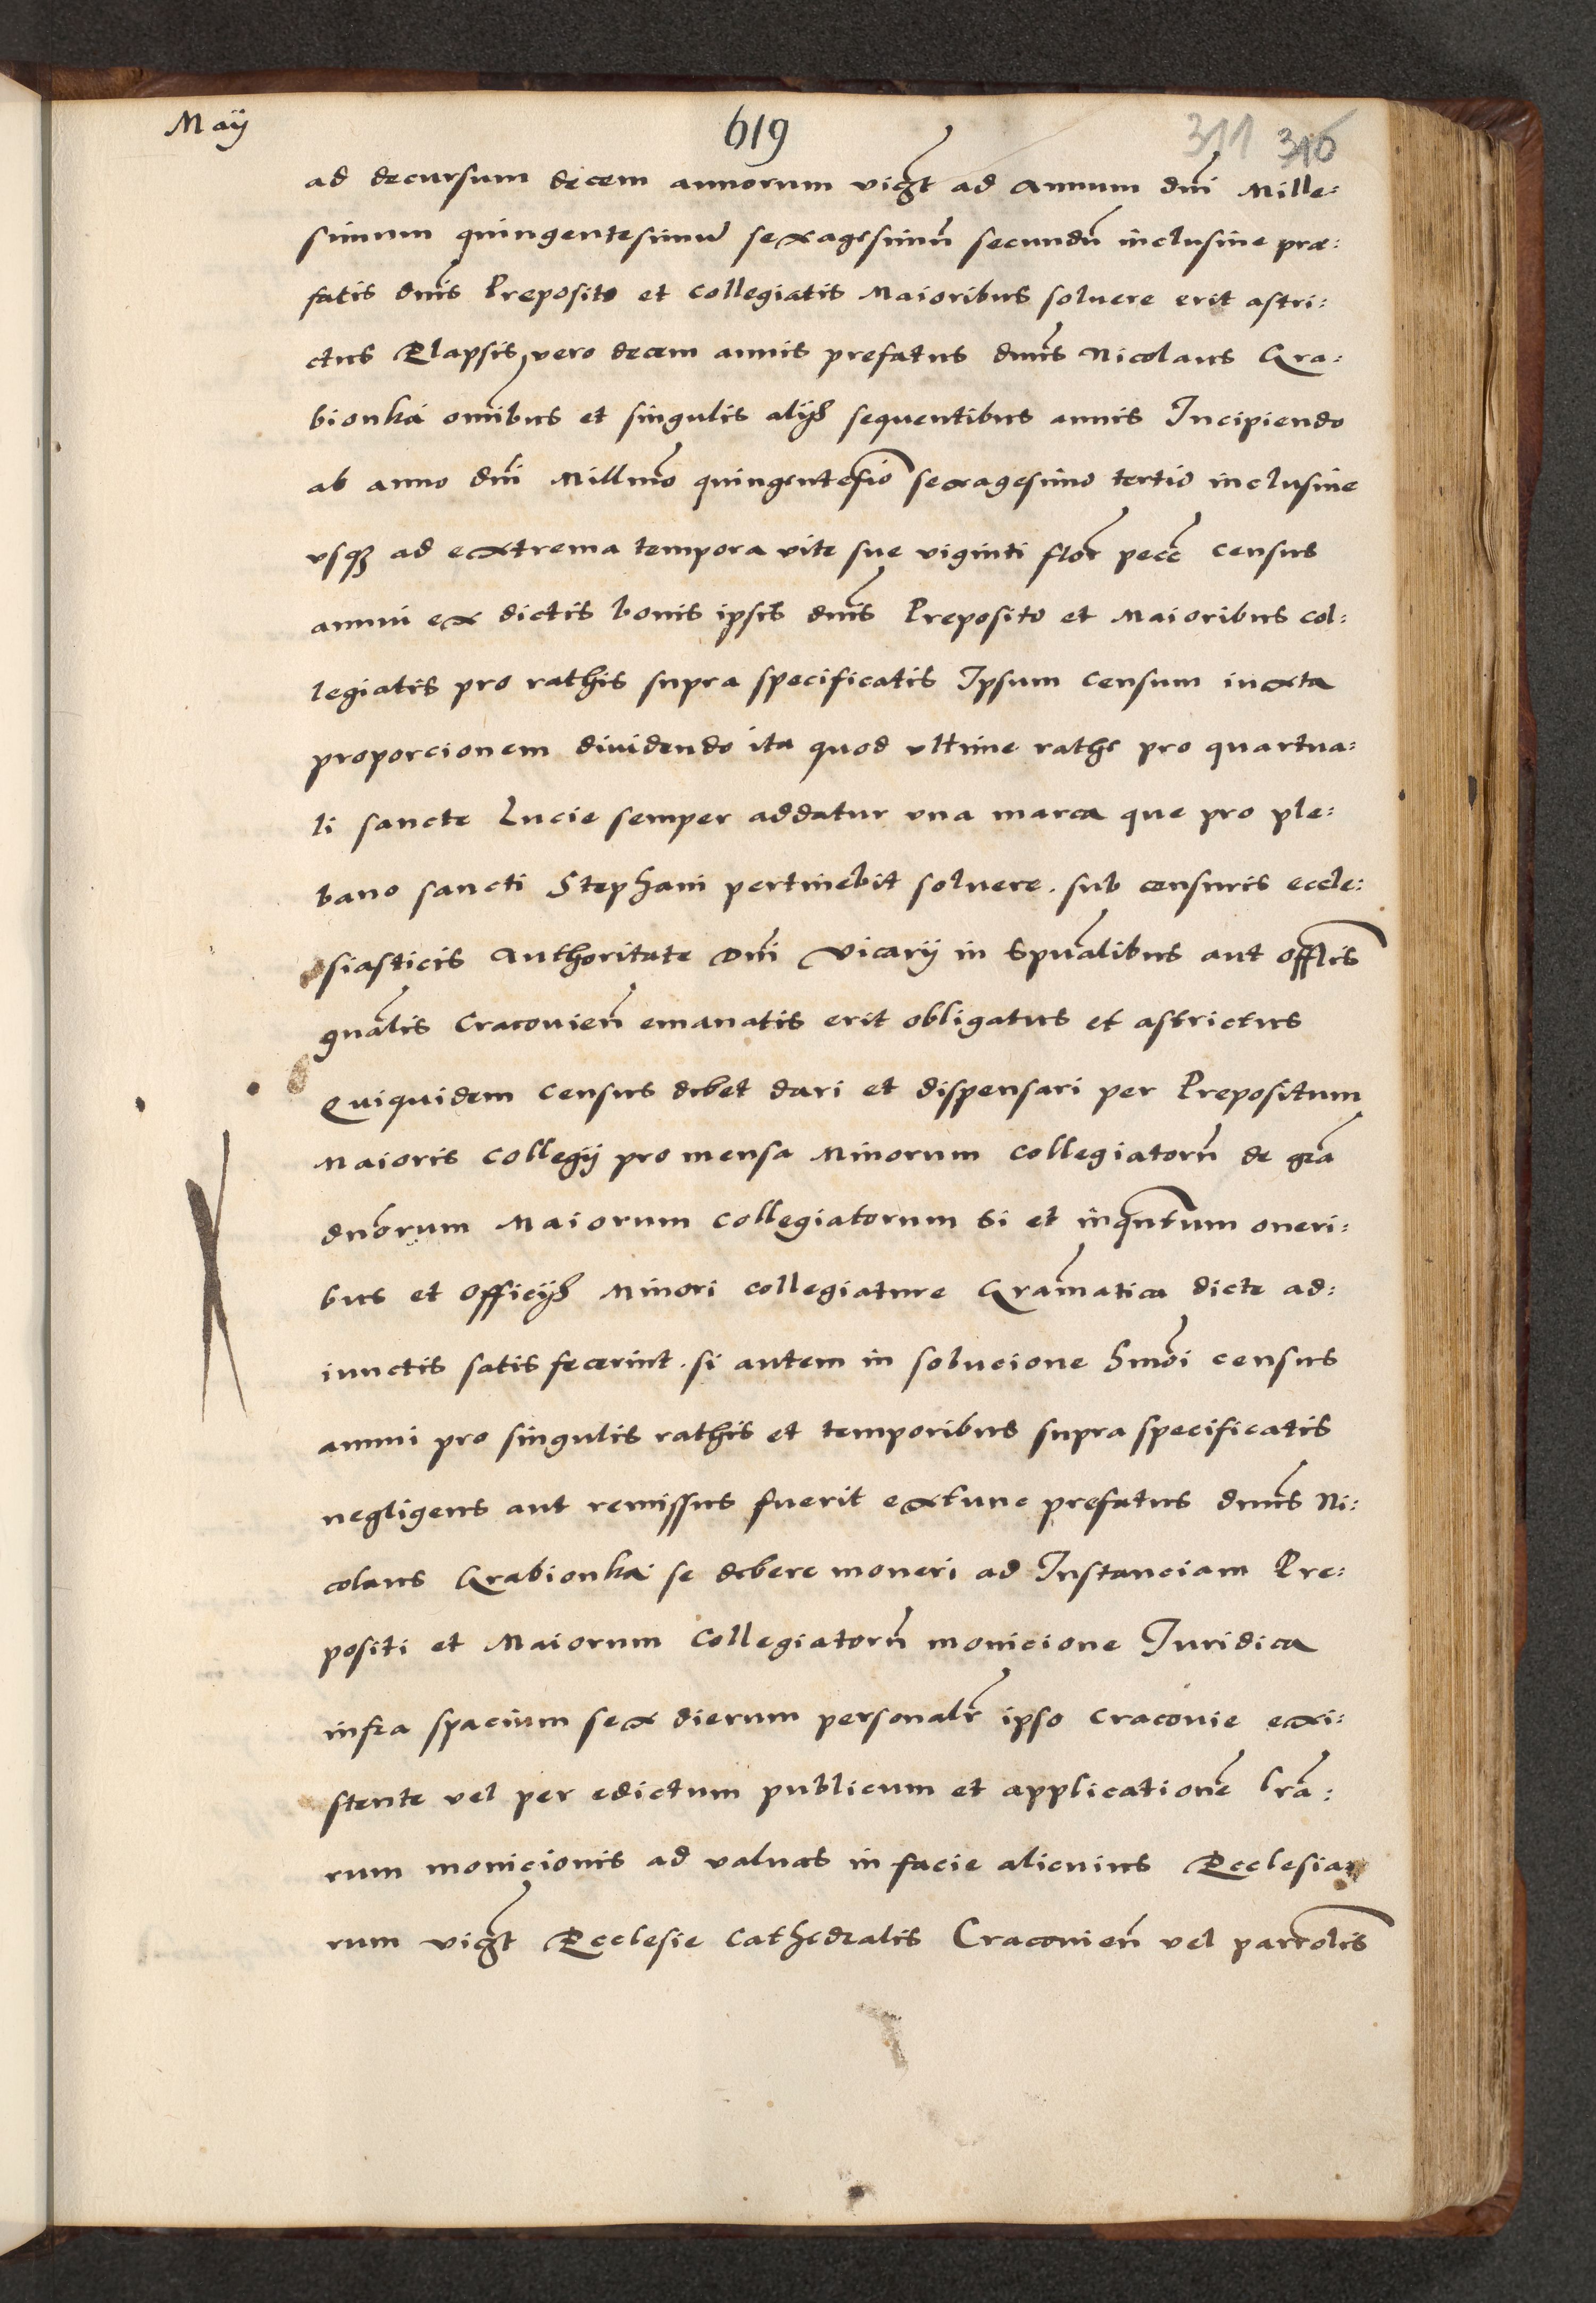 Maÿ
619
311 316
ad decursum decem annorum vigt ad Annum dni Mille:
simum quingentesimu sexagesimu secundu inclusiue præ:
fatis dnis Preposito et Collegiatis Maioribus soluere erit astri:
ctus Elapsis, vero decem annis prefatus dnus Nicolaus Gra:
bionka omibus et singulis alijs sequentibus annis Incipiendo
ab anno dni Millmo quingentesio sexagesimo tertio inclusiue
vsq3 ad extrema tempora vite sue viginti flor pecc census
annui ex dictis bonis ipsis dnis Preposito et Maioribus col:
legiatis pro rathis supra specificatis Ipsum Censum iuxta
proporcionem diuidendo ita quod vltime rathe pro quartua:
li sancte Lucie semper addatur vna marca que pro ple:
bano sancti Stephani pertinebit soluere. sub censuris eccle:
siasticis Authoritate Dni Vicarij in Spualibus aut Offlis
gnalis Cracouien emanatis erit obligatus et astrictus
Quiquidem Census debet dari et dispensari per Prepositum
Maioris Collegij pro mensa Minorum Collegiatoru de gra
dnorum Maiorum Collegiatorum Si et inqntum oneri:
bus et Officijs Minori collegiature Gramatica dicte ad:
iunctis satis fecerint. si autem in solucione hmoi census
annui pro singulis rathis et temporibus supra specificatis
negligens aut remissus fuerit extunc prefatus dnus Ni:
colaus Grabionka se debere moneri ad Instanciam Pre:
positi et Maiorum Collegiatoru monicione Iuridica
infra spacium sex dierum personalr ipso Cracouie exi:
stente vel per edictum publicum et applicatione lra:
rum monicionis ad valuas in facie alicuius Ecclesia:
rum vigt Ecclesie Cathedralis Cracouien vel parrolis